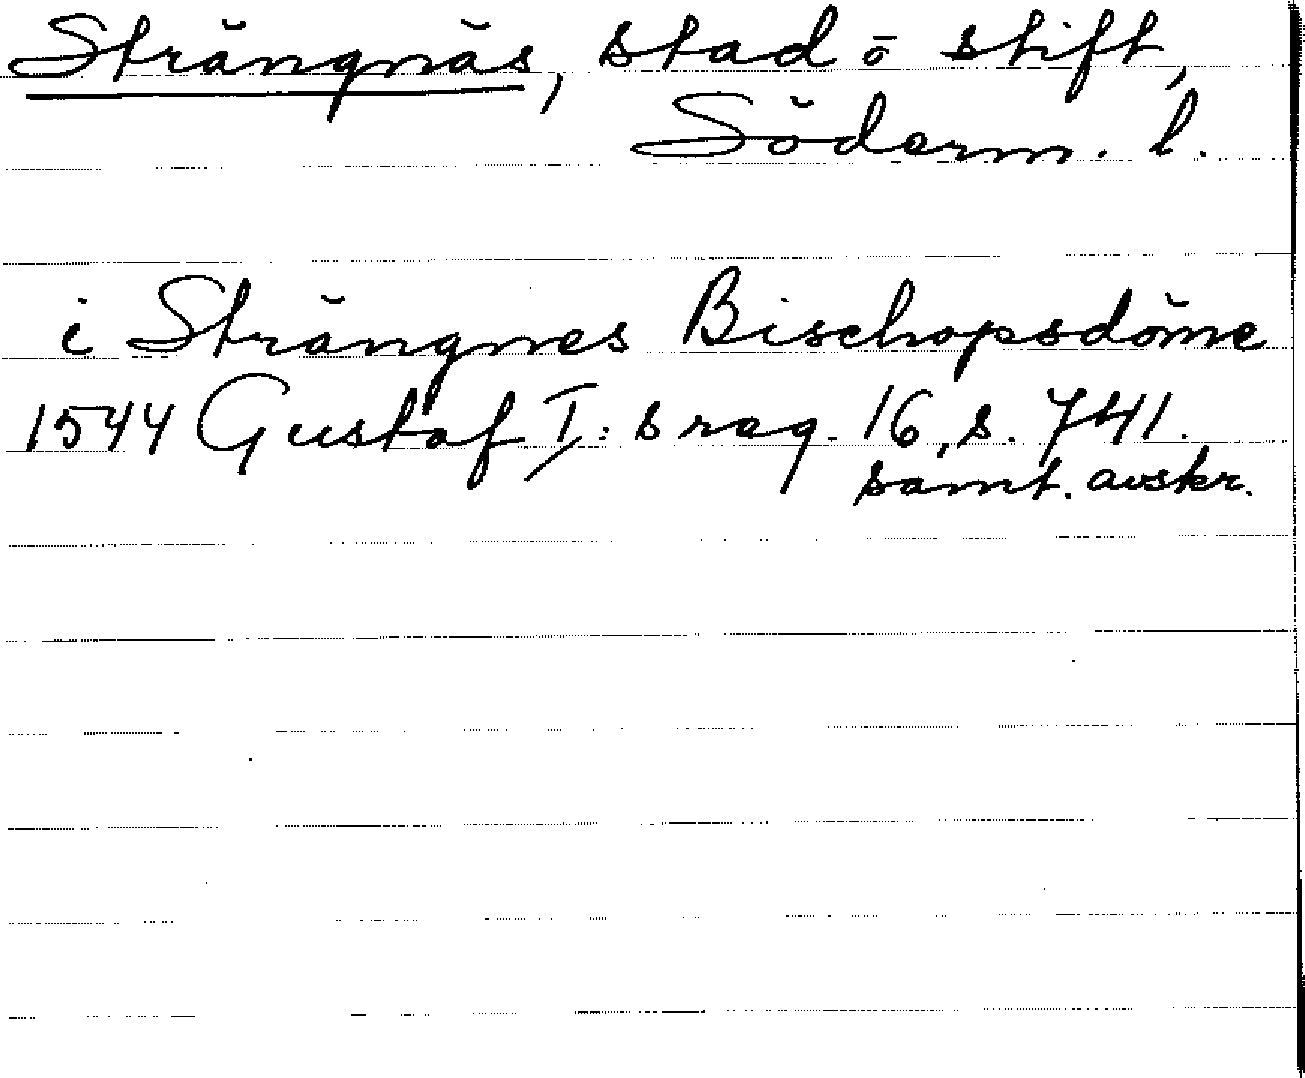 Strängnäs, stad o stift,
Söderm. l.
i Strängnes Bischopsdöme
1544 Gustaf I: s reg. 16, s. 741.
samt. avskr.